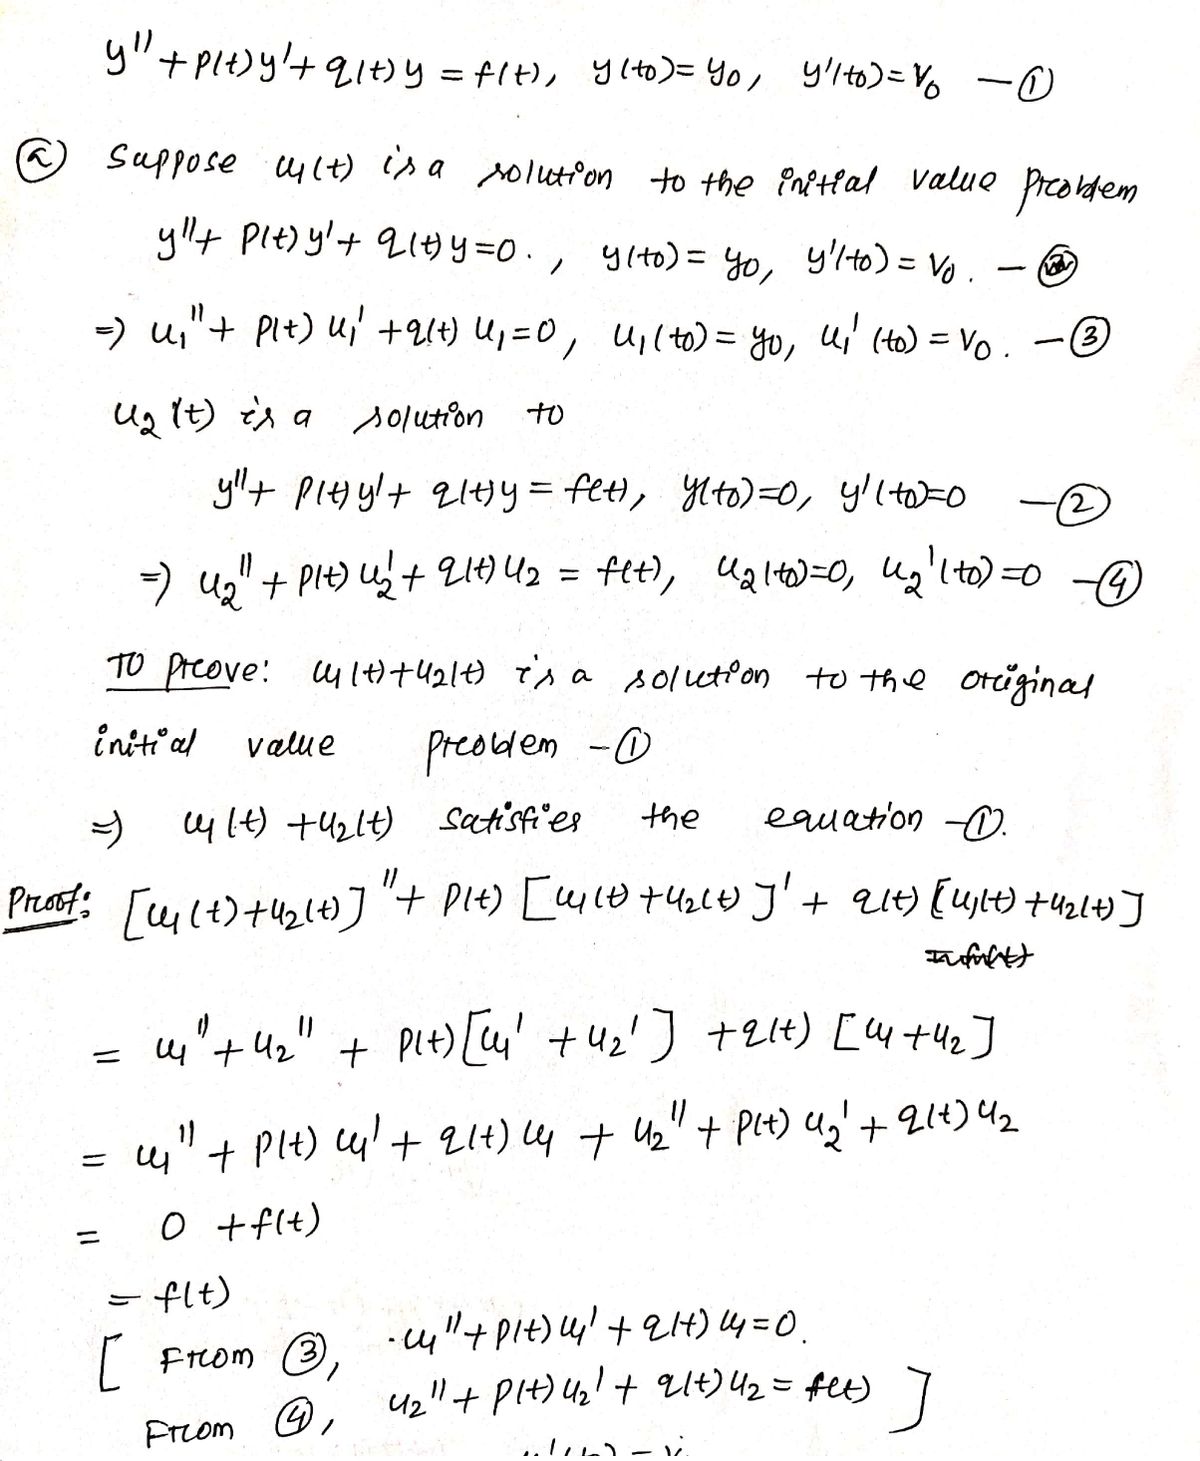 y'' + p(t)y' + q(t)y = f(t), y(t0) = y0, y'(t0) = V0 — ①
ⓐ Suppose u1(t) is a solution to the initial value problem
y'' + p(t)y' + q(t)y = 0. , y(t0) = y0, y'(t0) = V0. —
⇒ u1'' + p(t) u1' + q(t) u1 = 0, u1(t0) = y0, u1'(t0) = V0. — ③
u2(t) is a solution to
y'' + p(t)y' + q(t)y = f(t), y(t0)=0, y'(t0)=0 — ②
⇒ u2'' + p(t) u2' + q(t) u2 = f(t), u2(t0)=0, u2'(t0)=0 — ④
To prove: u1(t)+u2(t) is a solution to the original
initial value problem – ①
⇒ u1(t) + u2(t) satisfies the equation — ①.
Proof: [u1(t)+u2(t)]'' + p(t) [u1(t)+u2(t)]' + q(t) [u1(t)+u2(t)]
= u1'' + u2'' + p(t)[u1' + u2'] + q(t) [u1+u2]
= u1'' + p(t) u1' + q(t) u1 + u2'' + p(t) u2' + q(t) u2
= 0 + f(t)
= f(t)
[ From ③, u1'' + p(t) u1' + q(t) u1 = 0.
From ④, u2'' + p(t) u2' + q(t) u2 = f(t) ]